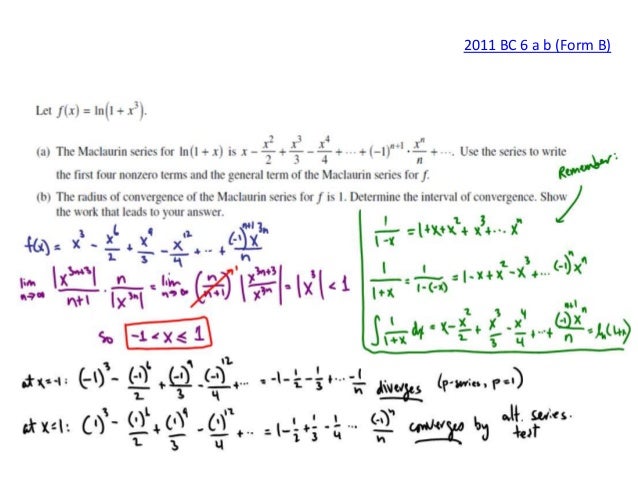 2011 BC 6 a b (Form B)
Let f(x) = ln(1 + x³).
(a) The Maclaurin series for ln(1 + x) is x − x²/2 + x³/3 − x⁴/4 + ··· + (−1)ⁿ⁺¹ · xⁿ/n + ···. Use the series to write
the first four nonzero terms and the general term of the Maclaurin series for f.
Remember:
(b) The radius of convergence of the Maclaurin series for f is 1. Determine the interval of convergence. Show
the work that leads to your answer.
f(x) = x³ − x⁶/2 + x⁹/3 − x¹²/4 + ··· + (−1)ⁿ⁺¹x³ⁿ/n
lim n→∞ |x³ⁿ⁺³|/n+1 · n/|x³ⁿ| = lim n→∞ (n/n+1)¹ |x³ⁿ⁺³/x³ⁿ| = |x³| < 1
So -1 < x ≤ 1
1/1-x = 1+x+x²+x³+... xⁿ
1/1+x = 1/1-(-x) = 1-x+x²-x³+... (-1)ⁿxⁿ
∫ 1/1+x dx = x - x²/2 + x³/3 - x⁴/4 + ··· + (-1)ⁿ⁺¹xⁿ/n = ln(1+x)
at x=-1: (-1)³ - (-1)⁶/2 + (-1)⁹/3 - (-1)¹²/4 + ··· = -1 - 1/2 - 1/3 + ··· - 1/n diverges (p-series, p=1)
at x=1: (1)³ - (1)⁶/2 + (1)⁹/3 - (1)¹²/4 + ·· = 1 - 1/2 + 1/3 - 1/4 ··· (-1)ⁿ/n converges by alt. series. test